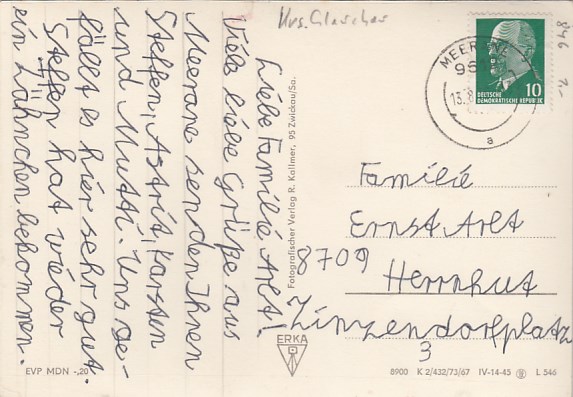 Krs. Glauchau
846
Liebe Familie Arlt!
Viele liebe Grüße aus
Meerane senden Ihnen
Steffen, Astrit, Karsten
und Mutti. Uns ge-
fällt es hier sehr gut.
Steffen hat wieder
ein Zähnchen bekommen.
EVP MDN -,20
Fotografischer Verlag R. Kallmer, 95 Zwickau/Sa.
ERKA
MEERANE
a
10
DEUTSCHE
DEMOKRATISCHE REPUBLIK
Familie
Ernst Arlt
8709
Herrnhut
Zinzendorfplatz
3
8900 K 2/432/73/67 IV-14-45 L 546